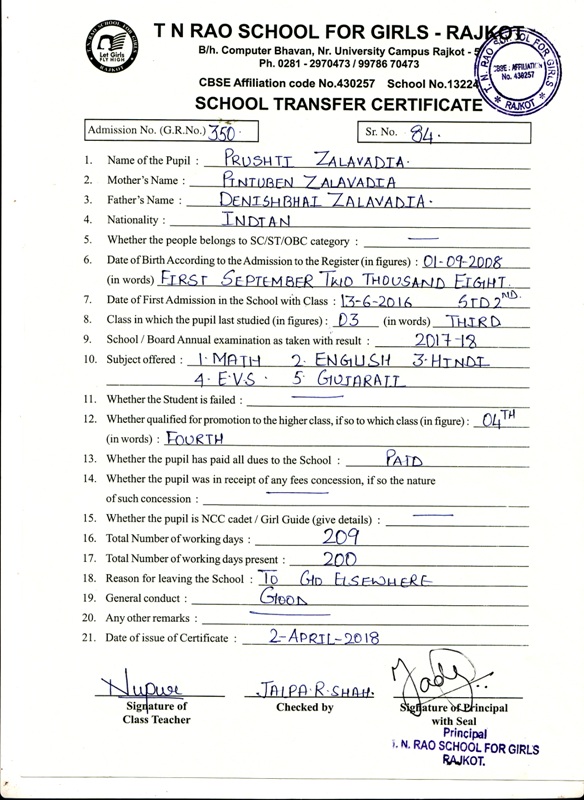 T N RAO SCHOOL FOR GIRLS - RAJKOT
T. N. RAO SCHOOL FOR GIRLS
RAJKOT
Let Girls
FLY HIGH
B/h. Computer Bhavan, Nr. University Campus Rajkot - 5
Ph. 0281 - 2970473 / 99786 70473
CBSE Affiliation code No.430257 School No.13224
T. N. RAO SCHOOL FOR GIRLS
CBSE : AFFILIATION
No. 430257
* RAJKOT *
SCHOOL TRANSFER CERTIFICATE
Admission No. (G.R.No.) 350. Sr. No. 84.
1. Name of the Pupil : PRUSHTI ZALAVADIA.
2. Mother's Name : PINTUBEN ZALAVADIA
3. Father's Name : DENISHBHAI ZALAVADIA.
4. Nationality : INDIAN
5. Whether the people belongs to SC/ST/OBC category : —
6. Date of Birth According to the Admission to the Register (in figures) : 01-09-2008
(in words) FIRST SEPTEMBER TWO THOUSAND EIGHT.
7. Date of First Admission in the School with Class : 13-6-2016 STD 2ND.
8. Class in which the pupil last studied (in figures) : 03 (in words) THIRD
9. School / Board Annual examination as taken with result : 2017-18
10. Subject offered : 1. MATH 2. ENGLISH 3. HINDI
4. E.V.S. 5. GUJARATI
11. Whether the Student is failed : —
12. Whether qualified for promotion to the higher class, if so to which class (in figure) : 04TH
(in words) : FOURTH
13. Whether the pupil has paid all dues to the School : PAID
14. Whether the pupil was in receipt of any fees concession, if so the nature
of such concession : —
15. Whether the pupil is NCC cadet / Girl Guide (give details) : —
16. Total Number of working days : 209
17. Total Number of working days present : 200
18. Reason for leaving the School : TO GO ELSEWHERE
19. General conduct : GOOD
20. Any other remarks : —
21. Date of issue of Certificate : 2-APRIL-2018
Nupur JALPA.R.SHAH.
Signature of Checked by Signature of Principal
Class Teacher with Seal
Principal
T. N. RAO SCHOOL FOR GIRLS
RAJKOT.